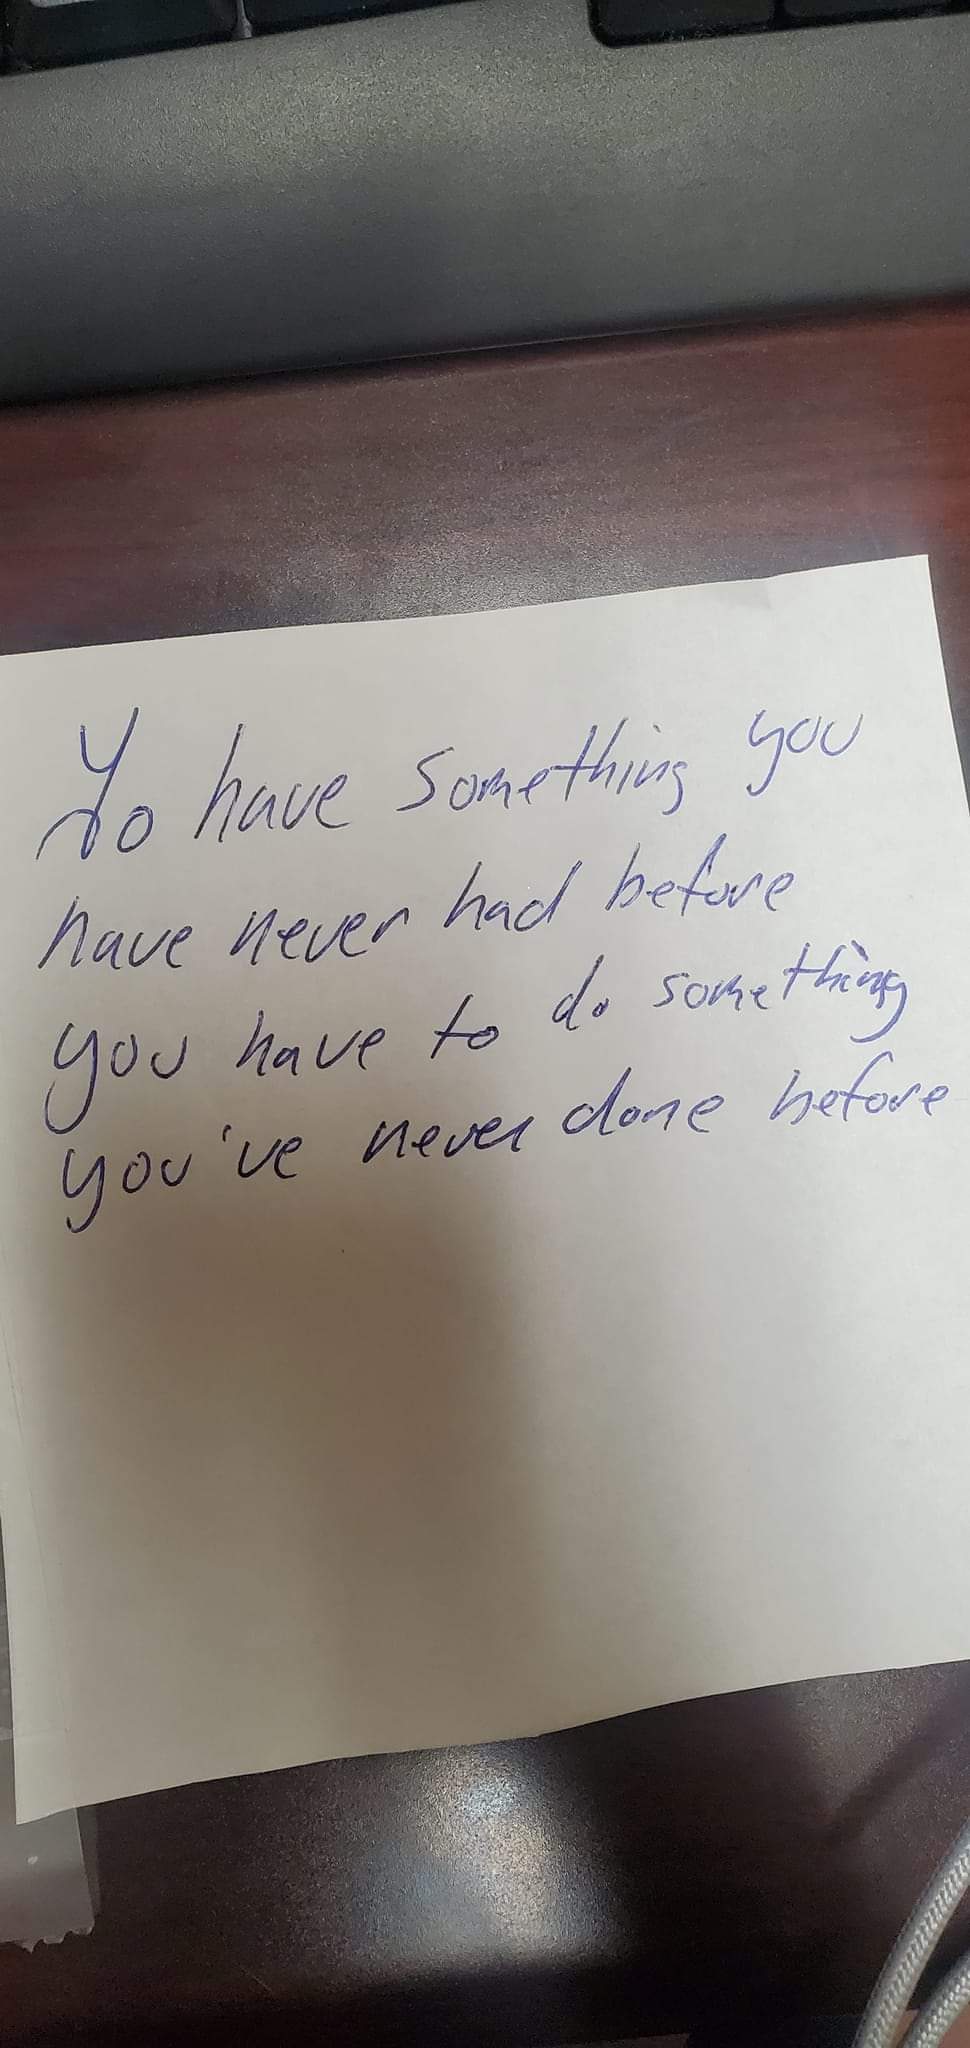 To have something you
have never had before
you have to do something
you've never done before